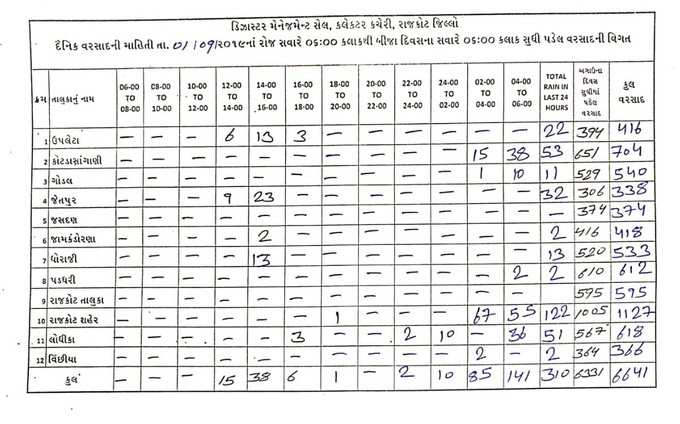 ડિઝાસ્ટર મેનેજમેન્ટ સેલ, કલેક્ટર કચેરી, રાજકોટ જિલ્લો
દૈનિક વરસાદની માહિતી તા. 01/09/૨૦૧૯નાં રોજ સવારે ૦૬:૦૦ કલાકથી બીજા દિવસના સવારે ૦૬:૦૦ કલાક સુધી પડેલ વરસાદની વિગત
ક્રમ તાલુકાનું નામ 06-00 TO 08-00 08-00 TO 10-00 10-00 TO 12-00 12-00 TO 14-00 14-00 TO 16-00 16-00 TO 18-00 18-00 TO 20-00 20-00 TO 22-00 22-00 TO 24-00 24-00 TO 02-00 02-00 TO 04-00 04-00 TO 06-00 TOTAL RAIN IN LAST 24 HOURS અગાઉના દિવસ સુધીમાં પડેલ વરસાદ કુલ વરસાદ
1 ઉપલેટા — — — 6 13 3 — — — — — — 22 394 416
2 કોટડાસાંગાણી — — — — — — — — — — 15 38 53 651 704
3 ગોંડલ — — — — — — — — — — 1 10 11 529 540
4 જેતપુર — — — 9 23 — — — — — — — 32 306 338
5 જસદણ — — — — — — — — — — — — — 374 374
6 જામકંડોરણા — — — — 2 — — — — — — — 2 416 418
7 ધોરાજી — — — — 13 — — — — — — — 13 520 533
8 પડધરી — — — — — — — — — — — 2 2 610 612
9 રાજકોટ તાલુકા — — — — — — — — — — — — 595 595
10 રાજકોટ શહેર — — — — — — 1 — — — 67 55 122 1005 1127
11 લોધીકા — — — — — 3 — — 2 10 — 36 51 567 618
12 વિંછીયા — — — — — — — — — — 2 — 2 364 366
કુલ — — — 15 38 6 1 — 2 10 85 141 310 6331 6641